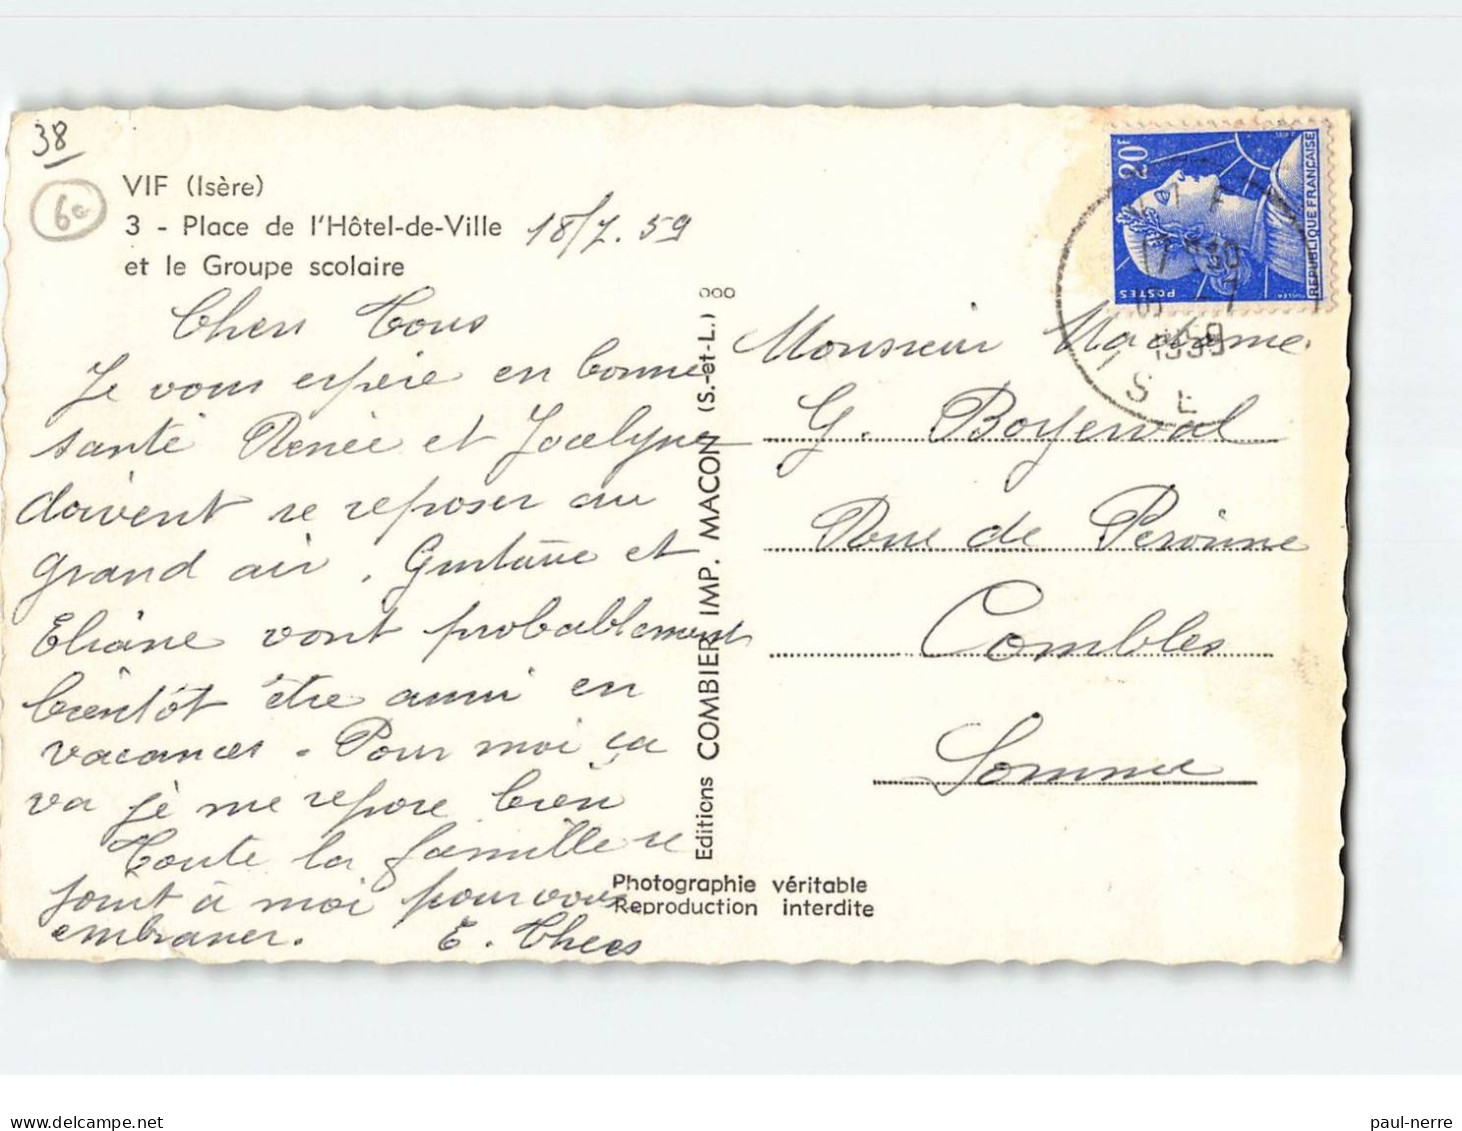 38
6e
VIF (Isère)
3 - Place de l'Hôtel-de-Ville
et le Groupe scolaire
18/7.59
Chers Tous
Je vous espère en bonne
santé Renée et Jocelyne
doivent se reposer au
grand air. Gustave et
Eliane vont probablement
bientôt être aussi en
vacances. Pour moi ça
va je me repose bien
Toute la famille se
joint à moi pour vous
embrasser. E.
Editions COMBIER IMP. MACON (S.-et-L.)
Photographie véritable
Reproduction interdite
20F
POSTES
REPUBLIQUE FRANÇAISE
VIF
17 30
-7
1959
ISE
Monsieur Madame
G. Boyerval
Rue de Péronne
Combles
Somme
paul-nerre